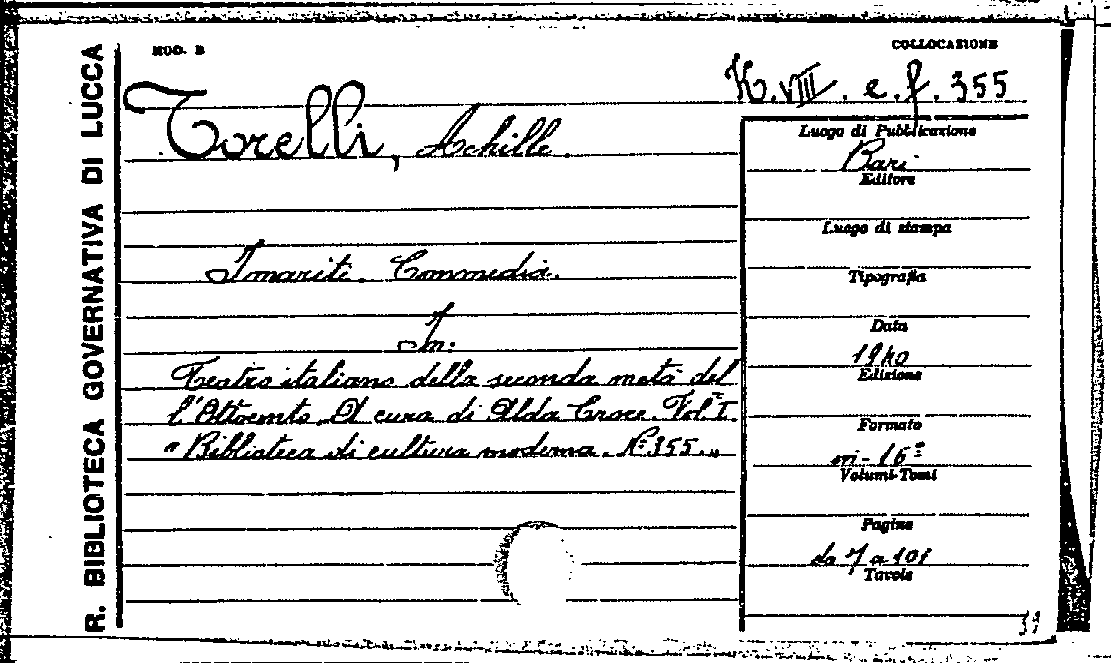 R. BIBLIOTECA GOVERNATIVA DI LUCCA
MOD. B
COLLOCAZIONE
K. VIII. e. f. 355
Torelli, Achille.
I mariti. Commedia.
In:
Teatro italiano della seconda metà del
l'Ottocento. A cura di Alda Croce. Vol. I.
"Biblioteca di cultura moderna. N. 355."
Luogo di Pubblicazione
Bari
Editore
Luogo di stampa
Tipografia
Data
1940
Edizione
Formato
in-16º
Volumi-Tomi
Pagine
da 7 a 101
Tavole